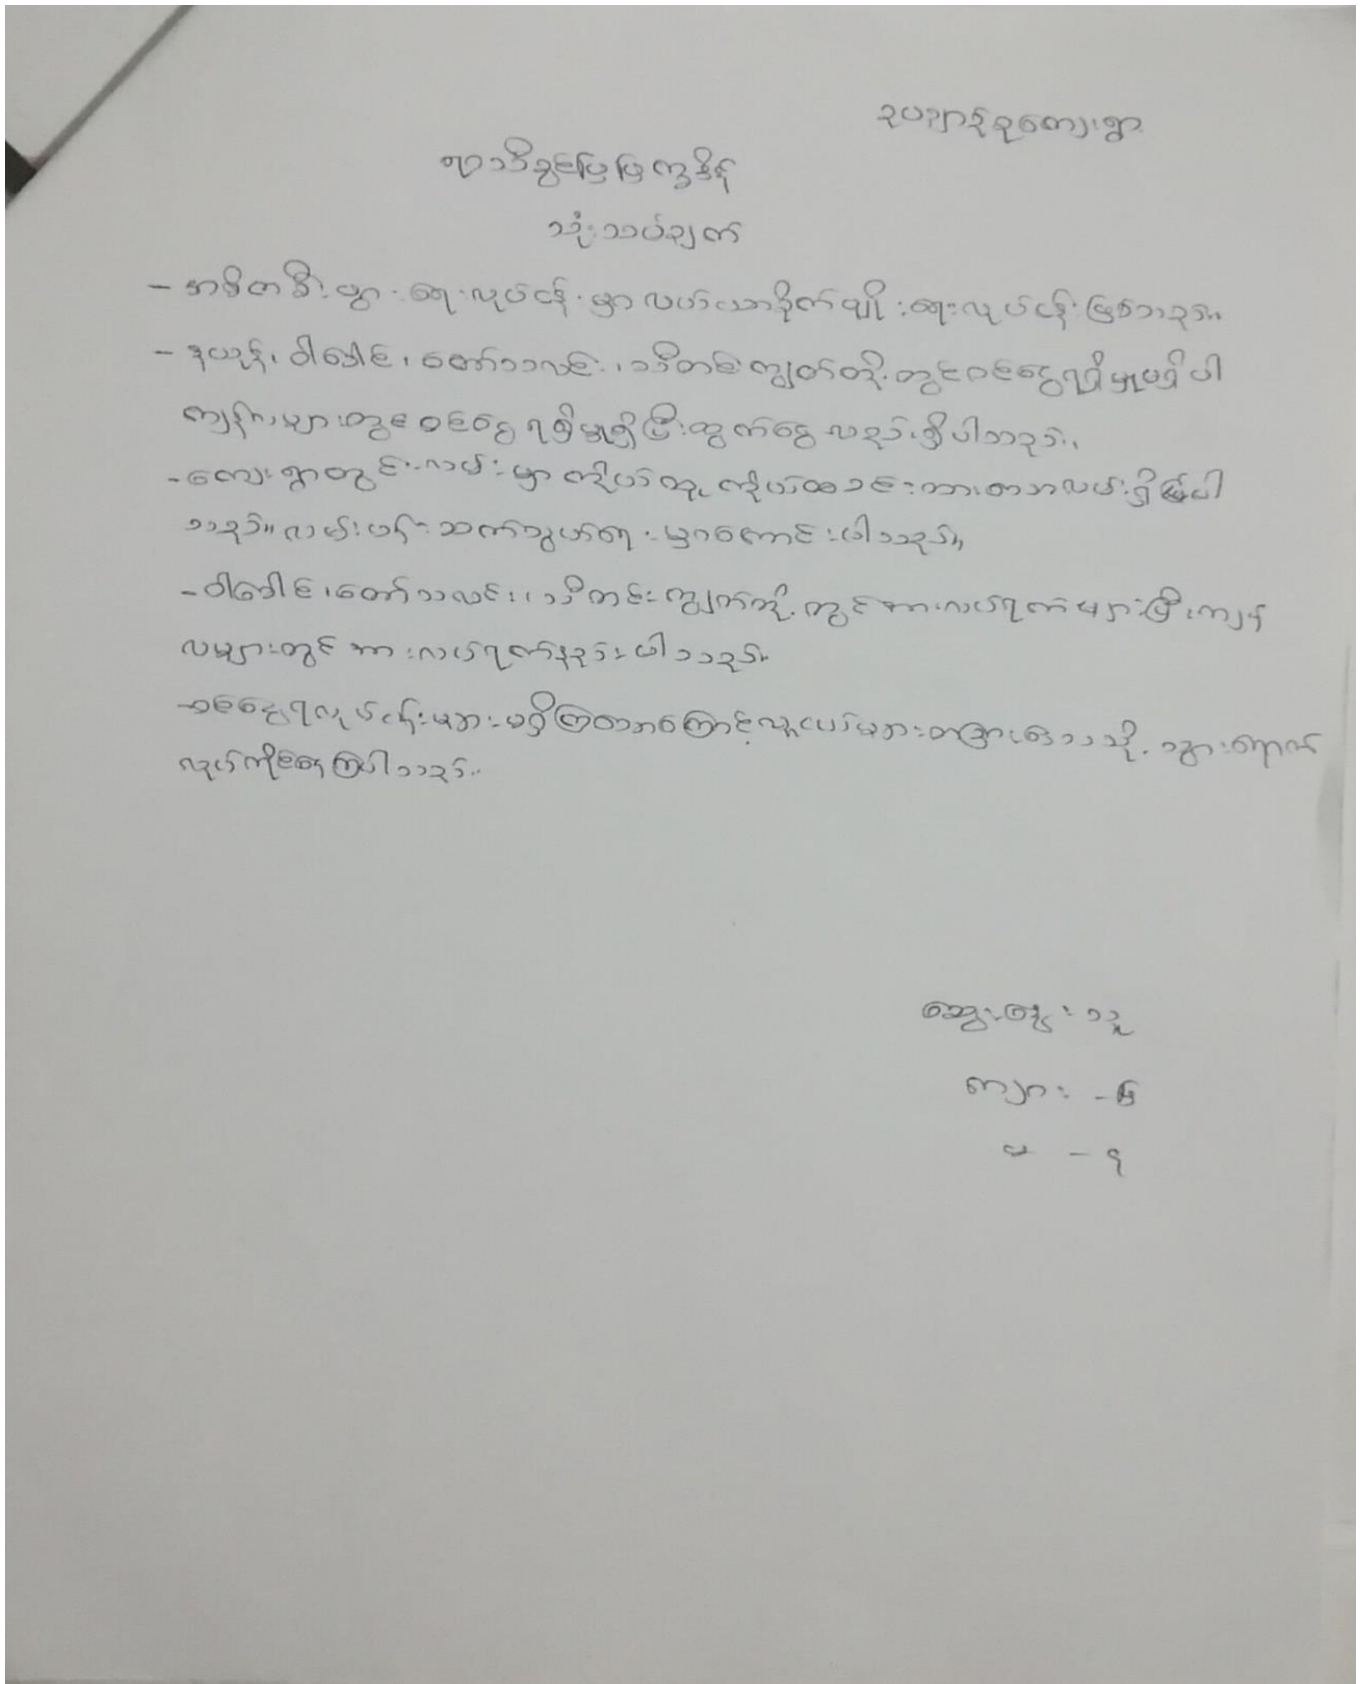 ရာသီခွင်ပြပြက္ခဒိန်
သုံးသပ်ချက်
- အဓိကစီးပွားရေးလုပ်ငန်းမှာ လယ်ယာစိုက်ပျိုးရေးလုပ်ငန်းဖြစ်သည်။
- နယုန်၊ ဝါခေါင်၊ တော်သလင်း၊ သီတင်းကျွတ်တို့တွင်ဝင်ငွေရရှိမှုမရှိပါ
ကျန်လများတွင်ဝင်ငွေရရှိမှုရှိပြီးထွက်ငွေလည်းရှိပါသည်။
- ကျေးရွာတွင်းလမ်းမှာ ကိုယ်ထူကိုယ်ထခင်းထားသောလမ်းရှိပါ
သည်။ လမ်းပန်းဆက်သွယ်ရေးမှာကောင်းပါသည်။
- ဝါခေါင်၊ တော်သလင်း၊ သီတင်းကျွတ်တို့တွင်အားလပ်ရက်များပြီးကျန်
လများတွင်အားလပ်ရက်နည်းပါသည်။
- ဝင်ငွေရလုပ်ငန်းများမရှိကြတာကြောင့်လူငယ်များတခြားဒေသသို့သွားရောက်
လုပ်ကိုင်နေကြပါသည်။
ဆွေးနွေးသူ
ကျား -
မ - ၅